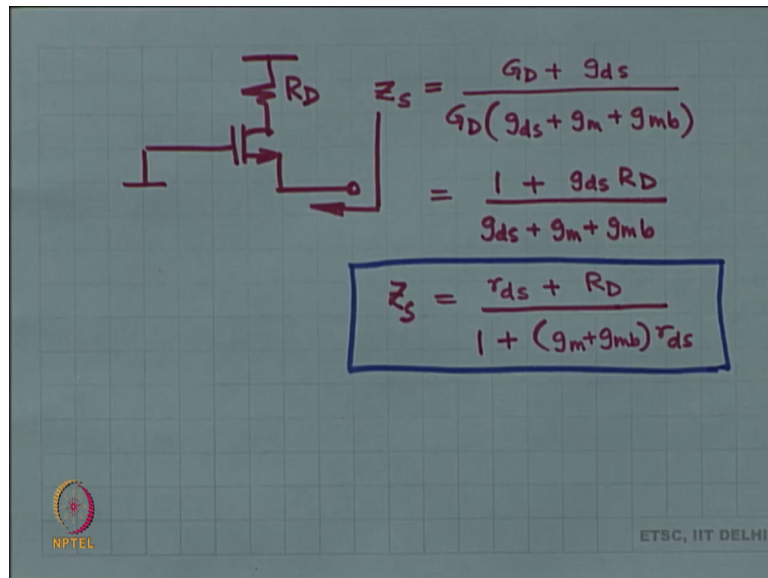 R_D
Z_S = (G_D + g_ds) / (G_D (g_ds + g_m + g_mb))
= (1 + g_ds R_D) / (g_ds + g_m + g_mb)
Z_S = (r_ds + R_D) / (1 + (g_m + g_mb) r_ds)
NPTEL
ETSC, IIT DELHI